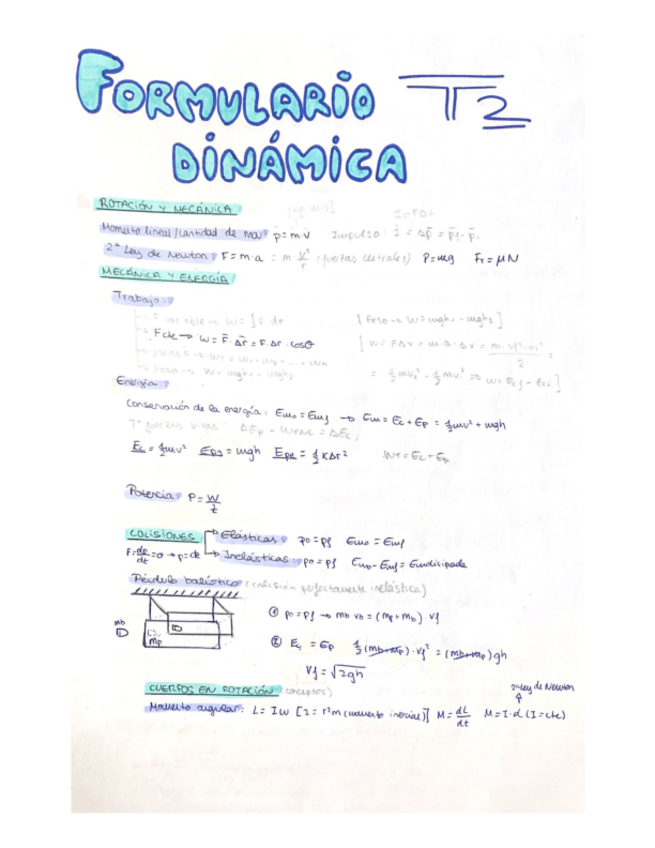 FORMULARIO T2
DINÁMICA
ROTACIÓN Y MECÁNICA
I=FΔt
Momento lineal/cantidad de mov p=m·v Impulso: I = Δp = pf - p₀
2ª Ley de Newton F=m·a = m v²/r (fuerzas centrales) P=mg Fr=μN
MECÁNICA Y ENERGÍA
Trabajo:
F variable → W=∫F dr [Peso → W=mgh₁ - mgh₂]
F cte → W=F·Δr=F·Δr·cosθ [W=FΔx=m·a·Δx=m·vf²-v₀²/2 =
Peso → W=mgh₁-mgh₂ = ½mvf²-½mv₀² ⇒ W=Ecf-Ec₀]
Energía:
Conservación de la energía: Em₀=Emf → Em=Ec+Ep=½mv²+mgh
Tª fuerzas vivas: ΔEp - WFNC=ΔEc
Ec=½mv² Epg=mgh Epe=½KΔr²
Potencia P=W/t
COLISIONES Elásticas p₀=pf Em₀=Emf
F=dp/dt=0→p=cte Inelásticas: p₀=pf Em₀-Emf=Emdisipada
Péndulo balístico (colisión perfectamente inelástica)
mb
mp
① p₀=pf → mb vb=(mp+mb) vf
② Ec=Ep ½(mb+mp)·vf²=(mb+mp)gh
vf=√2gh
2ª Ley de Newton
CUERPOS EN ROTACIÓN (conceptos)
Momento angular: L=Iω [I=r²m (momento inercial)] M=dL/dt M=I·α (I=cte)